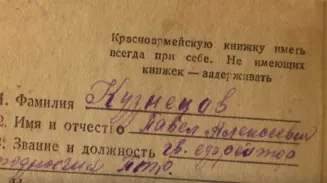 Красноармейскую книжку иметь
всегда при себе. Не имеющих
книжек — задерживать
1. Фамилия Кузнецов
2. Имя и отчество Павел Алексеевич
3. Звание и должность гв. ефрейтор